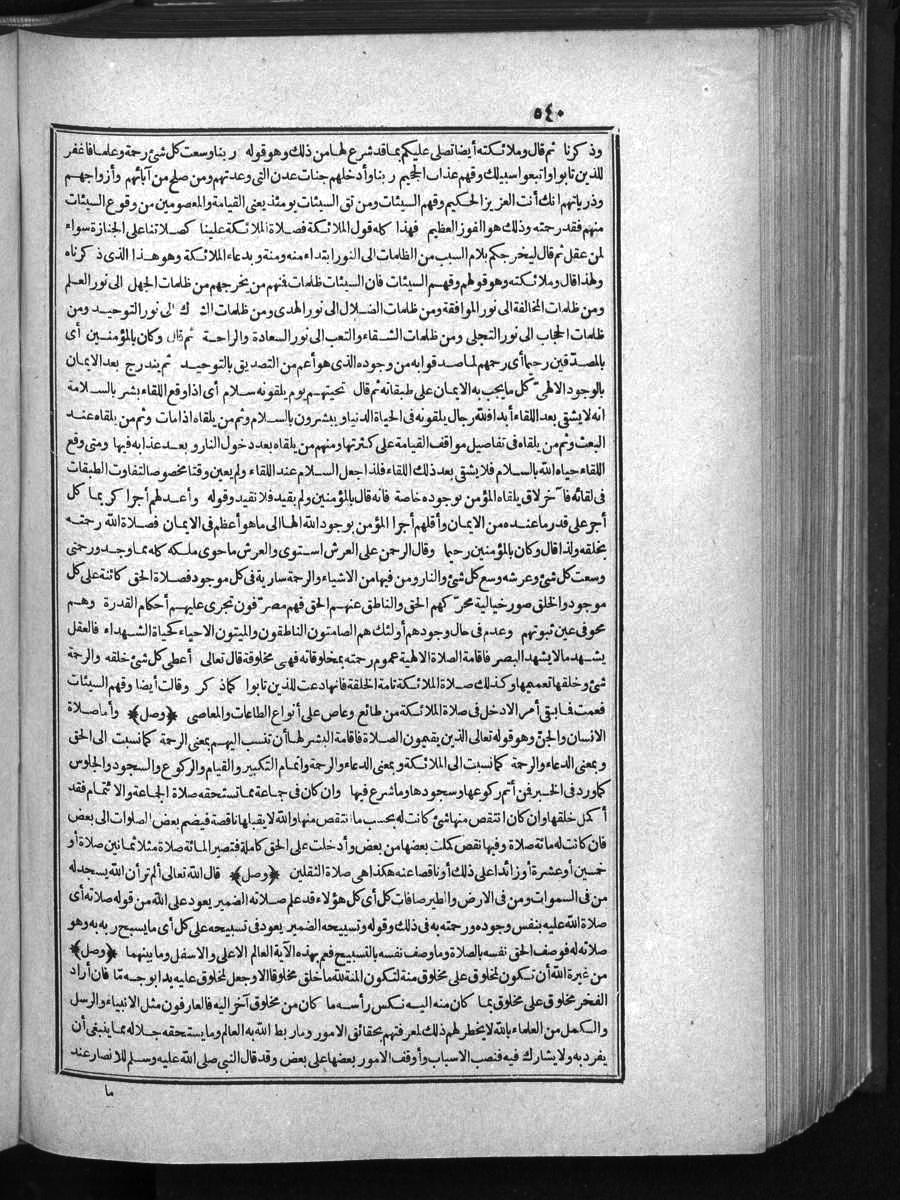 ٥٤٠
وذكرنا ثم قال وملائكته أيضا تصلى عليكم بما قد شرع لها من ذلك وهو قوله ربنا وسعت كل شئ رحمة وعلما فاغفر
للذين تابوا واتبعوا سبيلك وقهم عذاب الجحيم ربنا وأدخلهم جنات عدن التى وعدتهم ومن صلح من آبائهم وأزواجهم
وذرياتهم انك أنت العزيز الحكيم وقهم السيئات ومن تق السيئات يومئذ يعنى القيامة والمعصومين من وقوع السيئات
منهم فقد رحمته وذلك هو الفوز العظيم فهذا كله قول الملائكة فصلاة الملائكة علينا كصلاتنا على الجنازة سواء
لمن عقل ثم قال ليخرجكم بلام السبب من الظلمات الى النور ابتداء منه ومنة وبدعاء الملائكة وهو هذا الذى ذكرناه
ولهذا قال وملائكته وهو قولهم وقهم السيئات فان السيئات ظلمات فمنهم من يخرجهم من ظلمات الجهل الى نور العلم
ومن ظلمات المخالفة الى نور الموافقة ومن ظلمات الضلال الى نور الهدى ومن ظلمات الشرك الى نور التوحيد ومن
ظلمات الحجاب الى نور التجلى ومن ظلمات الشقاء والتعب الى نور السعادة والراحة ثم قال وكان بالمؤمنين أى
بالمصدّقين رحيما أى رحمهم لما صدقوا به من وجوده الذى هو أعم من التصديق بالتوحيد ثم يندرج بعد الايمان
بالوجود الالهىّ كل ما يجب به الايمان على طبقاته ثم قال تحيتهم يوم يلقونه سلام أى اذا وقع اللقاء بشر بالسلامة
انه لا يشقى بعد اللقاء أبدا فلله رجال يلقونه فى الحياة الدنيا ويبشرون بالسلام وثم من يلقاه اذا مات وثم من يلقاه عند
البعث وثم من يلقاه فى تفاصيل مواقف القيامة على كثرتها ومنهم من يلقاه بعد دخول النار وبعد عذابه فيها ومتى وقع
اللقاء حياه الله بالسلام فلا يشقى بعد ذلك اللقاء فلذا جعل السلام عند اللقاء ولم يعين وقتا مخصوصا لتفاوت الطبقات
فى لقائه فآخر لاق يلقاه المؤمن بوجوده خاصة فانه قال بالمؤمنين ولم يقيد فلا نقيد وقوله وأعد لهم أجرا كريما كل
أجر على قدر ما عنده من الايمان وأقلهم أجرا المؤمن بوجود الله الها الى ما هو أعظم فى الايمان فصلاة الله رحمته
بخلقه ولذا قال وكان بالمؤمنين رحيما وقال الرحمن على العرش استوى والعرش ما حوى ملكه كله مما وجد ورحمتى
وسعت كل شئ وعرشه وسع كل شئ والنار ومن فيها من الاشياء والرحمة سارية فى كل موجود فصلاة الحق كائنة على كل
موجود والخلق صور خيالية محرّكهم الحق والناطق عنهم الحق فهم مصرّفون تجرى عليهم أحكام القدرة وهم
محو فى عين ثبوتهم وعدم فى حال وجودهم أولئك هم الصامتون الناطقون والميتون الاحياء كحياة الشهداء فالعقل
يشهد ما لا يشهد البصر فاقامة الصلاة الالهية عموم رحمته بمخلوقاته فهى مخلوقة قال تعالى أعطى كل شئ خلقه والرحمة
شئ وخلقها تعميمها وكذلك صلاة الملائكة تامة الخلقة فانها دعت للذين تابوا كما ذكر وقالت أيضا وقهم السيئات
فعمت فما بقى أمر الا دخل فى صلاة الملائكة من طائع وعاص على أنواع الطاعات والمعاصى ﴿وصل﴾ وأما صلاة
الانسان والجنّ وهو قوله تعالى الذين يقيمون الصلاة فاقامة البشر لها أن تنسب اليهم بمعنى الرحمة كما نسبت الى الحق
وبمعنى الدعاء والرحمة كما نسبت الى الملائكة وبمعنى الدعاء والرحمة واتمام التكبير والقيام والركوع والسجود والجلوس
كما ورد فى الخبر فمن أتم ركوعها وسجودها وما شرع فيها وان كان فى جماعة مما تستحقه صلاة الجماعة والائتمام فقد
أكمل خلقها وان كان انتقص منها شئ كانت له بحسب ما انتقص منها والله لا يقبلها ناقصة فيضم بعض الصلوات الى بعض
فان كانت له مائة صلاة وفيها نقص كملت بعضها من بعض وأدخلت على الحق كاملة فتصير المائة صلاة مثلا ثمانين صلاة أو
خمسين أو عشرة أو زائدا على ذلك أو ناقصا عنه هكذا هى صلاة الثقلين ﴿وصل﴾ قال الله تعالى ألم تر أن الله يسجد له
من فى السموات ومن فى الارض والطير صافات كل أى كل هؤلاء قد علم صلاته الضمير يعود على الله من قوله صلاته أى
صلاة الله عليه بنفس وجوده ورحمته به فى ذلك وقوله وتسبيحه الضمير يعود فى تسبيحه على كل أى ما يسبح ربه به وهو
صلاته له فوصف الحق نفسه بالصلاة وما وصف نفسه بالتسبيح فعم بهذه الآية العالم الاعلى والاسفل وما بينهما ﴿وصل﴾
من غيرة الله أن تكون لمخلوق على مخلوق منة لتكون المنة لله ما خلق مخلوقا الا وجعل لمخلوق عليه يدا بوجه مّا فان أراد
الفخر مخلوق على مخلوق بما كان منه اليه نكس رأسه ما كان من مخلوق آخر اليه فالعارفون مثل الانبياء والرسل
والكمل من العلماء بالله لا يخطر لهم ذلك لمعرفتهم بحقائق الامور وما ربط الله به العالم وما يستحقه جلاله مما ينبغى أن
يفرد به ولا يشارك فيه فنصب الاسباب وأوقف الامور بعضها على بعض وقد قال النبى صلى الله عليه وسلم للانصار عند
ما